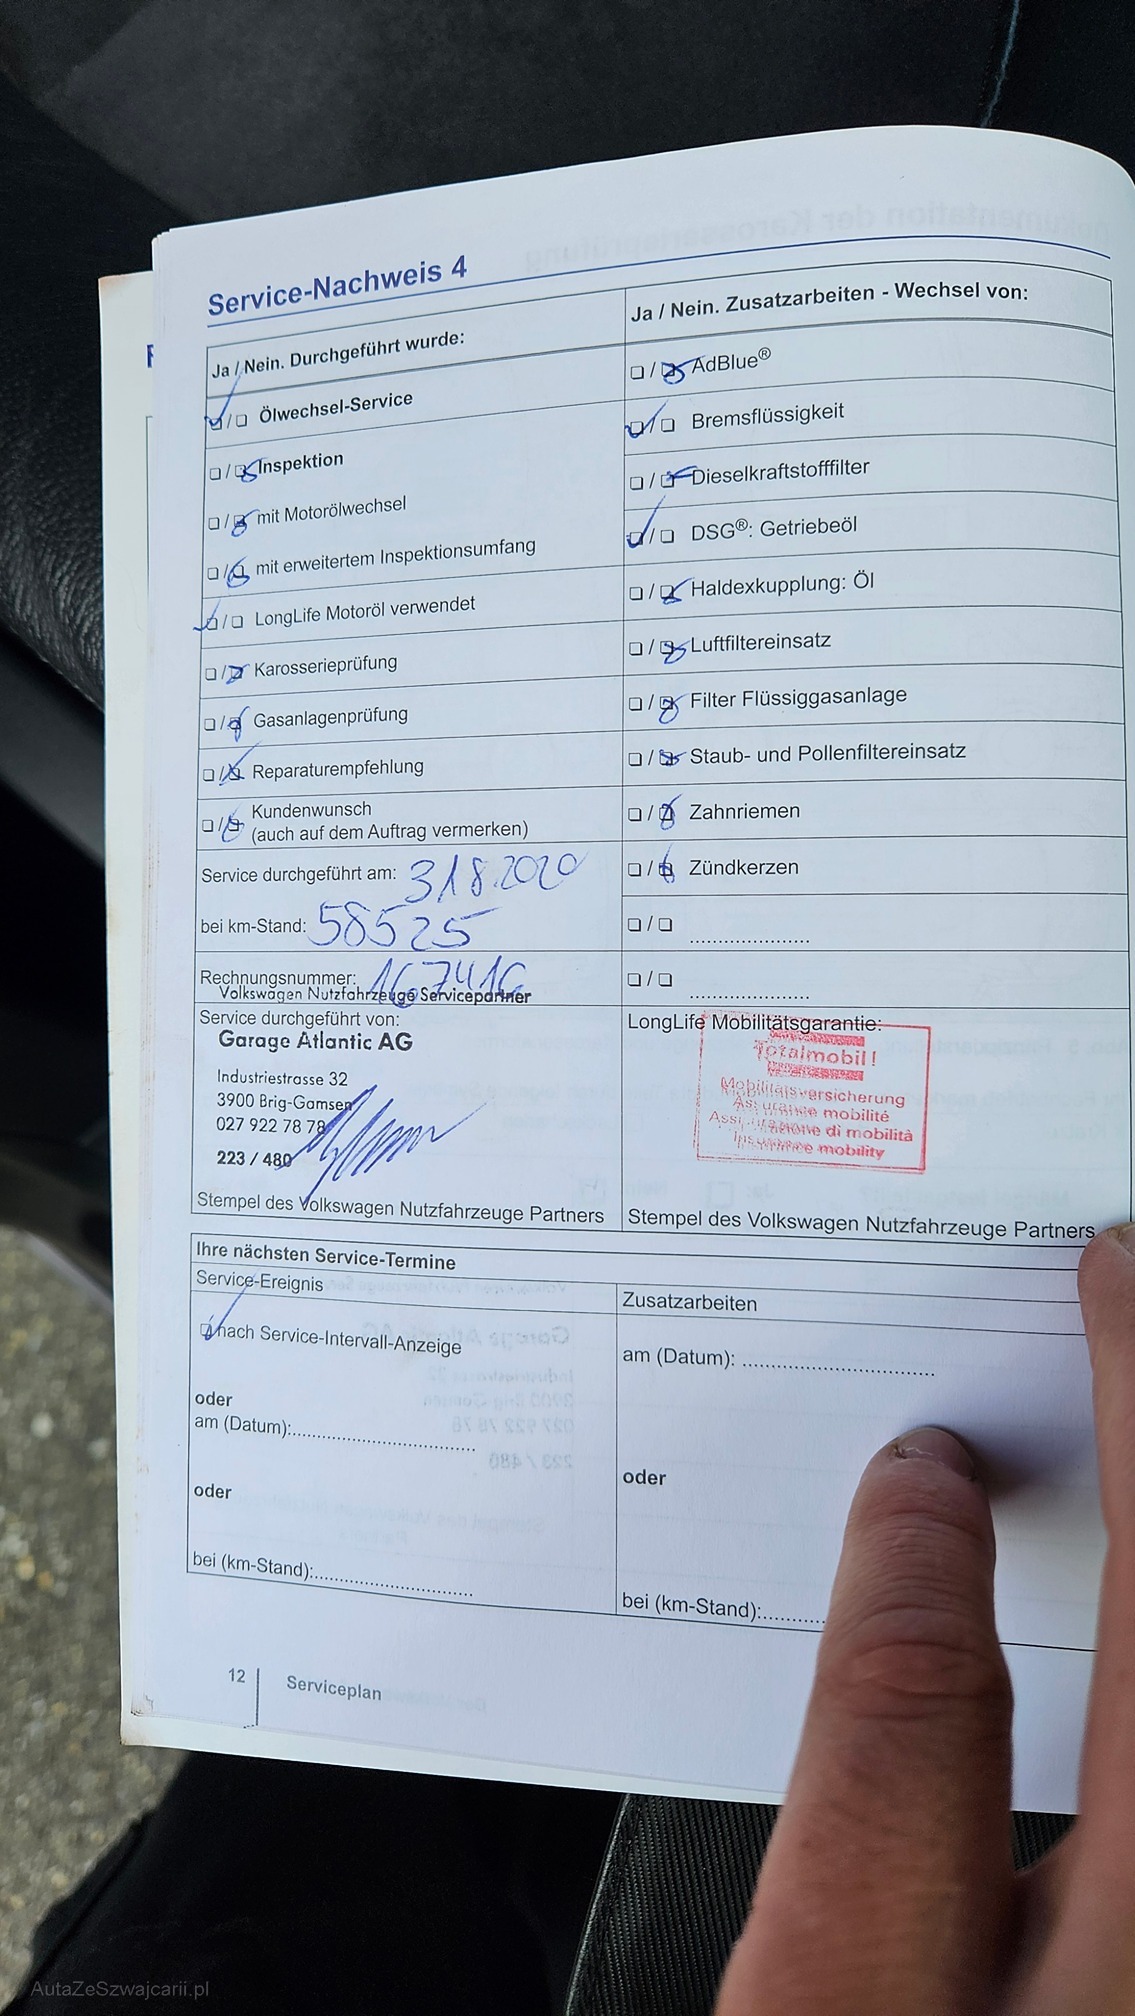 Service-Nachweis 4
Ja / Nein. Durchgeführt wurde:
Ölwechsel-Service
Inspektion
mit Motorölwechsel
mit erweitertem Inspektionsumfang
LongLife Motoröl verwendet
Karosserieprüfung
Gasanlagenprüfung
Reparaturempfehlung
Kundenwunsch
(auch auf dem Auftrag vermerken)
Service durchgeführt am: 31.8.2020
bei km-Stand: 58525
Rechnungsnummer: 167416
Volkswagen Nutzfahrzeuge Servicepartner
Service durchgeführt von:
Garage Atlantic AG
Industriestrasse 32
3900 Brig-Gamsen
027 922 78 78
223 / 480
Stempel des Volkswagen Nutzfahrzeuge Partners
Ja / Nein. Zusatzarbeiten - Wechsel von:
AdBlue®
Bremsflüssigkeit
Dieselkraftstofffilter
DSG®: Getriebeöl
Haldexkupplung: Öl
Luftfiltereinsatz
Filter Flüssiggasanlage
Staub- und Pollenfiltereinsatz
Zahnriemen
Zündkerzen
LongLife Mobilitätsgarantie:
Totalmobil!
Mobilitätsversicherung
Assurance mobilité
Assicurazione di mobilità
Insurance mobility
Stempel des Volkswagen Nutzfahrzeuge Partners
Ihre nächsten Service-Termine
Service-Ereignis
nach Service-Intervall-Anzeige
oder
am (Datum):
oder
bei (km-Stand):
Zusatzarbeiten
am (Datum):
oder
bei (km-Stand):
12 Serviceplan
AutaZeSzwajcarii.pl